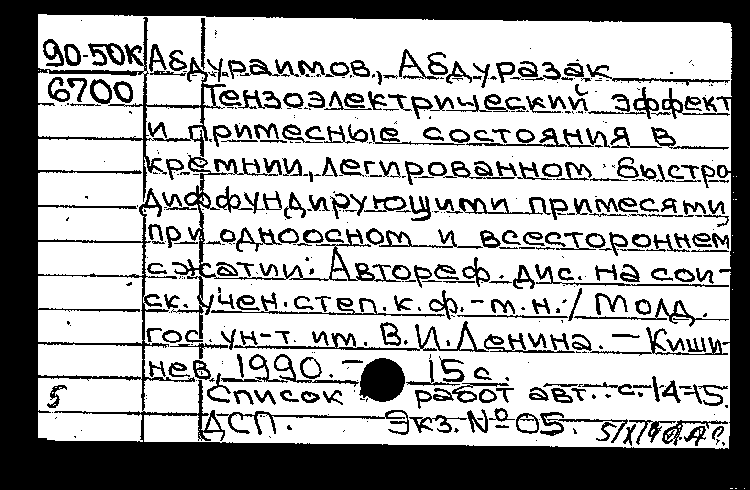 90-50К Абдураимов, Абдуразак
6700 Тензоэлектрический эффект
и примесные состояния в
кремнии, легированном быстро
диффундирующими примесями
при одноосном и всестороннем
сжатии: Автореф. дис. на сои-
ск. учен. степ. к. ф.-м. н. / Молд.
гос. ун-т. им. В. И. Ленина. — Киши-
нев, 1990. — 15 с.
5 Список работ авт.: с. 14-15.
ДСП. Экз. № 05.